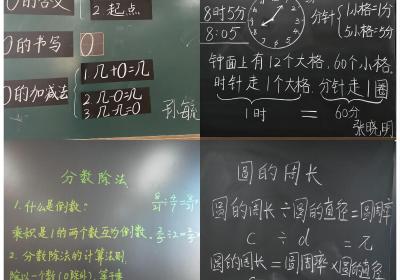 0的含义
2 起点
0的书写
0
0的加减法
1 几+0=几
2 几-0=几
3 几-几=0
孙毓
8时5分
8:05
分针
1小格=1分
5小格=5分
钟面上有12个大格,60个小格。
时针走1个大格,分针走1圈
1时 = 60分
张晓明
分数除法
1.什么是倒数:
乘积是1的两个数互为倒数.
2.分数除法的计算法则.
除以一个数(0除外),等于乘
圆的周长
圆的周长÷圆的直径=圆周率
C ÷ d = π
圆的周长=圆周率×圆的直径